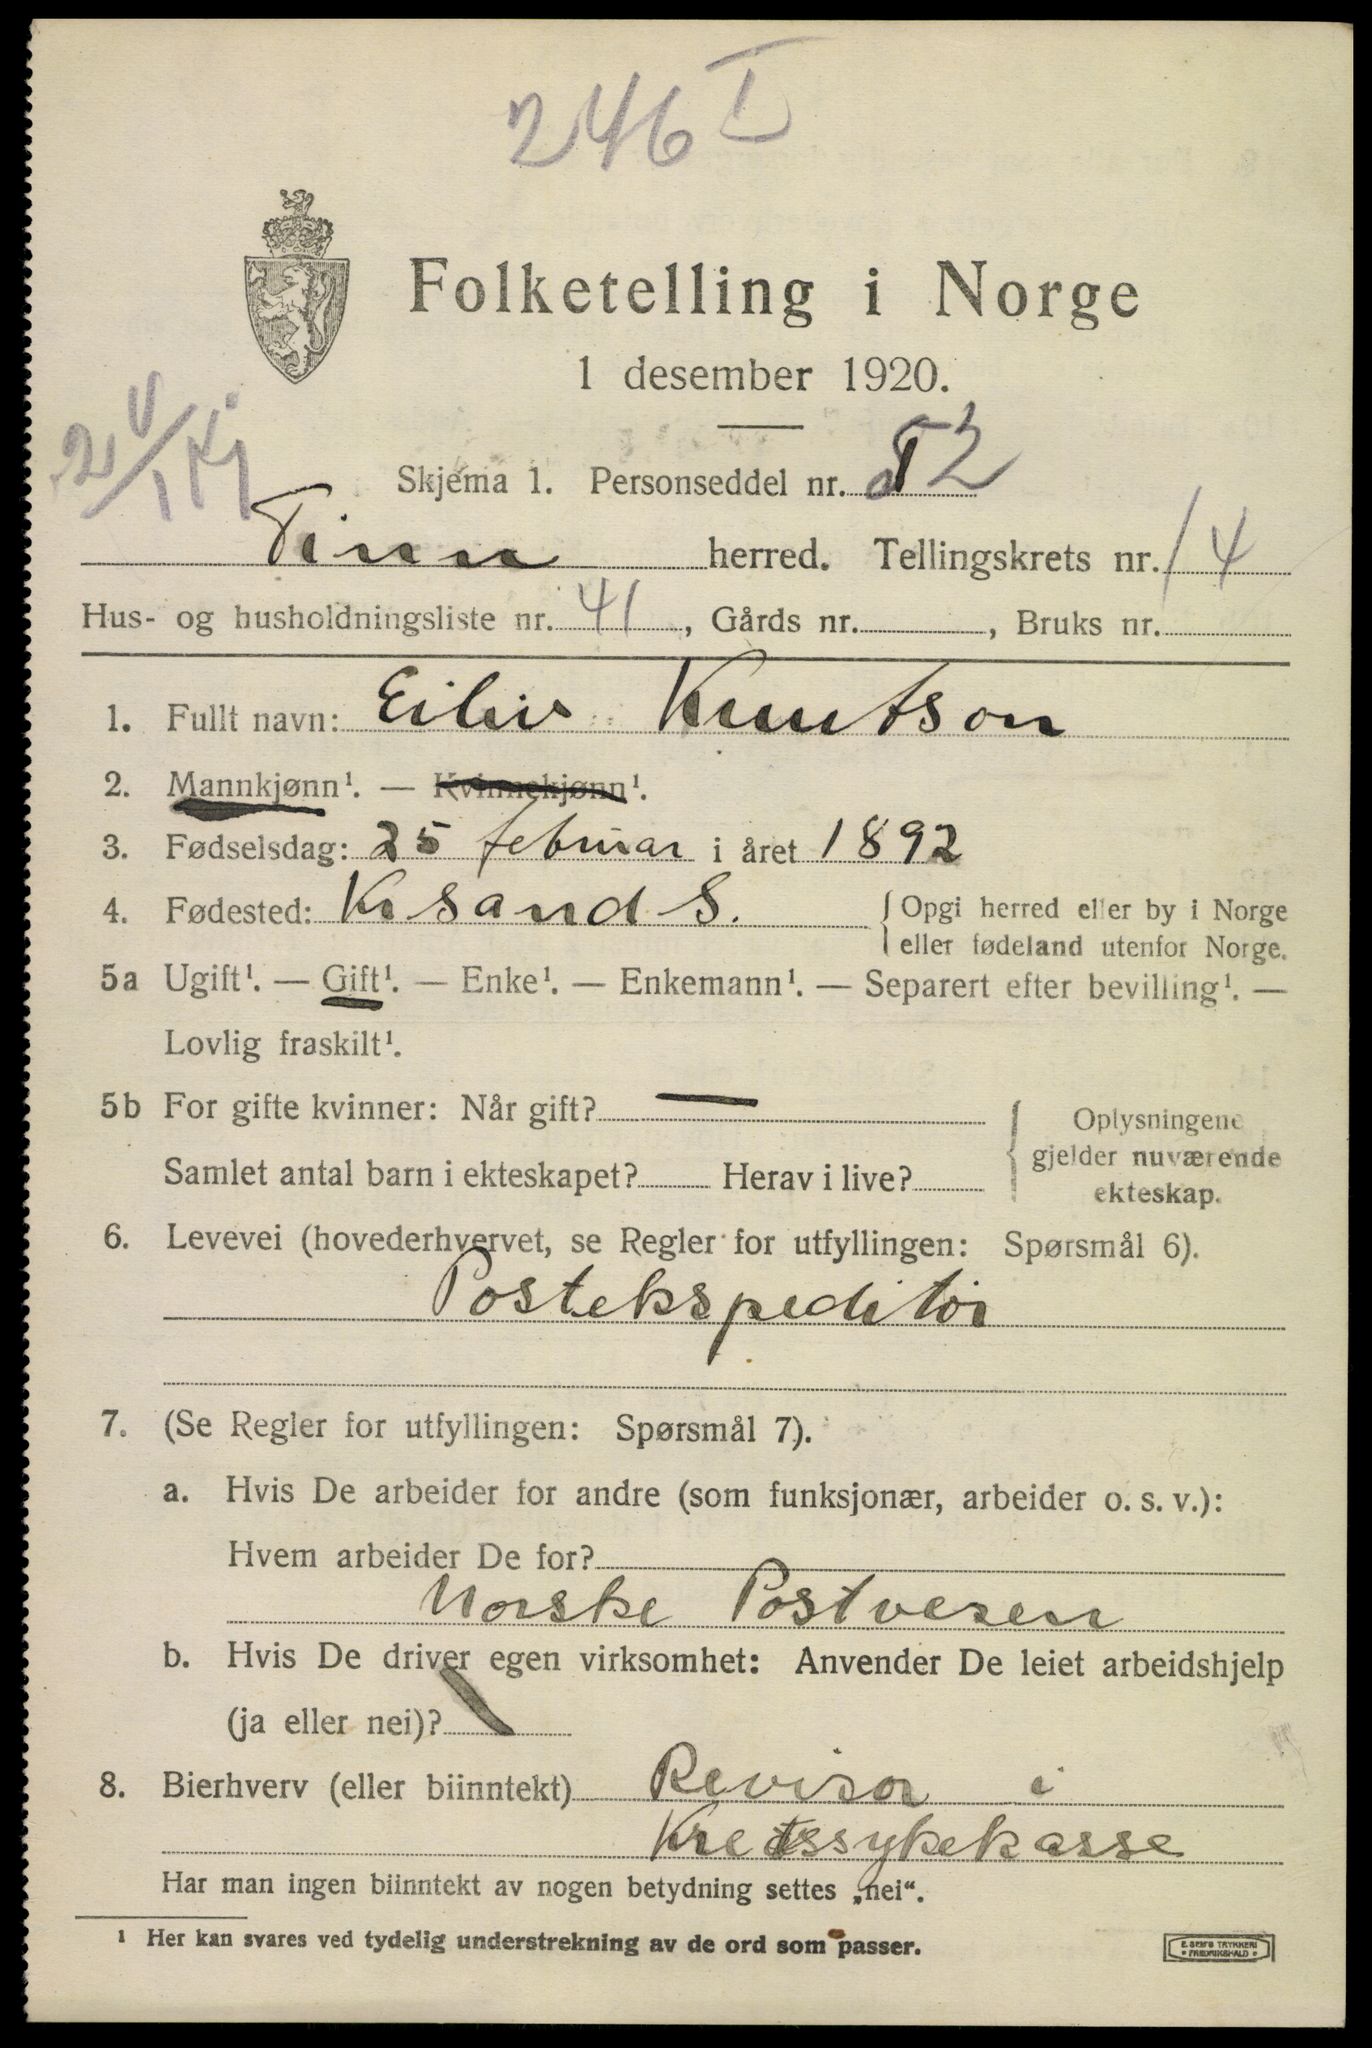 246 I
Folketelling i Norge
1 desember 1920.
Skjema 1. Personseddel nr. 2
Tinn herred. Tellingskrets nr. 14
Hus- og husholdningsliste nr. 41, Gårds nr. , Bruks nr.
1. Fullt navn: Eiliv Knutson
2. Mannkjønn¹. — Kvinnekjønn¹.
3. Fødselsdag: 25 februar i året 1892
4. Fødested: Kr sand S. { Opgi herred eller by i Norge
eller fødeland utenfor Norge.
5a Ugift¹. — Gift¹. — Enke¹. — Enkemann¹. — Separert efter bevilling¹. —
Lovlig fraskilt¹.
5b For gifte kvinner: Når gift? —
Samlet antal barn i ekteskapet? Herav i live?
{ Oplysningene
gjelder nuværende
ekteskap.
6. Levevei (hovederhvervet, se Regler for utfyllingen: Spørsmål 6).
Postekspeditør
7. (Se Regler for utfyllingen: Spørsmål 7).
a. Hvis De arbeider for andre (som funksjonær, arbeider o. s. v.):
Hvem arbeider De for?
Norske Postvesen
b. Hvis De driver egen virksomhet: Anvender De leiet arbeidshjelp
(ja eller nei)?
8. Bierhverv (eller biinntekt) Revisor i
Kretssykekasse
Har man ingen biinntekt av nogen betydning settes „nei“.
¹ Her kan svares ved tydelig understrekning av de ord som passer.
E. SEM'S TRYKKERI
FREDRIKSHALD